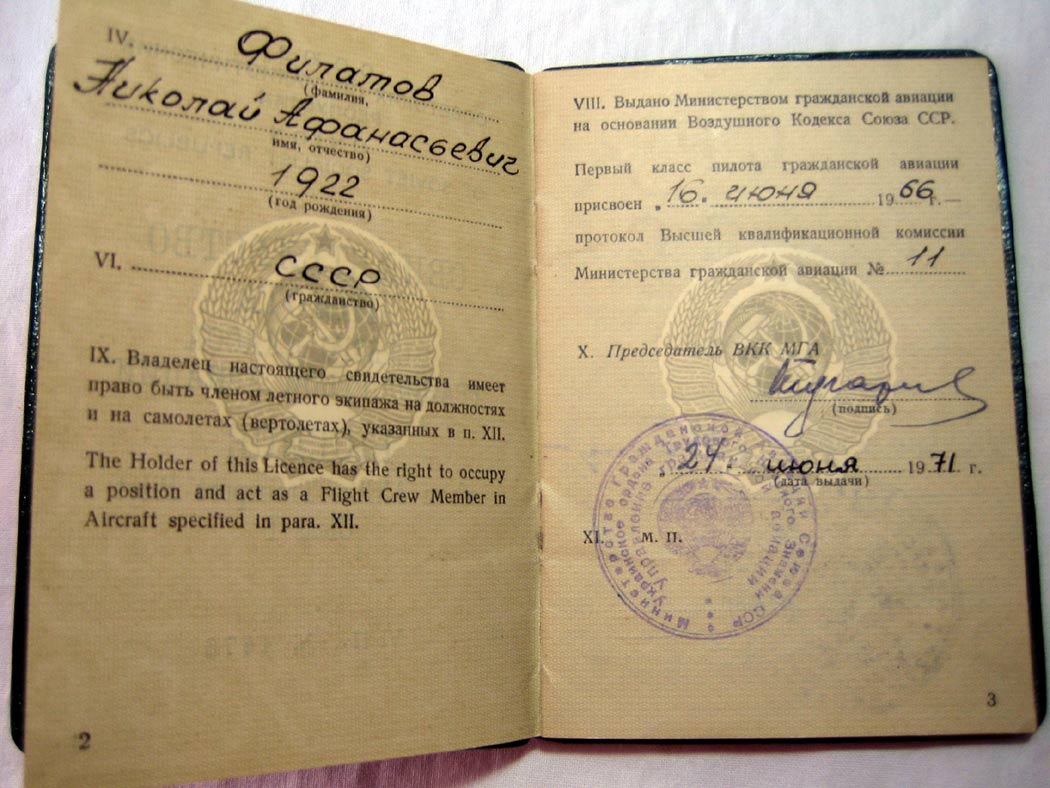 IV. Филатов
(фамилия,
Николай Афанасьевич
имя, отчество)
1922
(год рождения)
VI. СССР
(гражданство)
IX. Владелец настоящего свидетельства имеет
право быть членом летного экипажа на должностях
и на самолетах (вертолетах), указанных в п. XII.
The Holder of this Licence has the right to occupy
a position and act as a Flight Crew Member in
Aircraft specified in para. XII.
2
VIII. Выдано Министерством гражданской авиации
на основании Воздушного Кодекса Союза ССР.
Первый класс пилота гражданской авиации
присвоен „16. июня 1966г.—
протокол Высшей квалификационной комиссии
Министерства гражданской авиации № 11
X. Председатель ВКК МГА
(подпись)
„24. июня 1971 г.
(дата выдачи)
XI. м. п.
Министерство гражданской авиации Союза ССР
Украинское ордена Трудового Красного Знамени
управление гражданской авиации
3